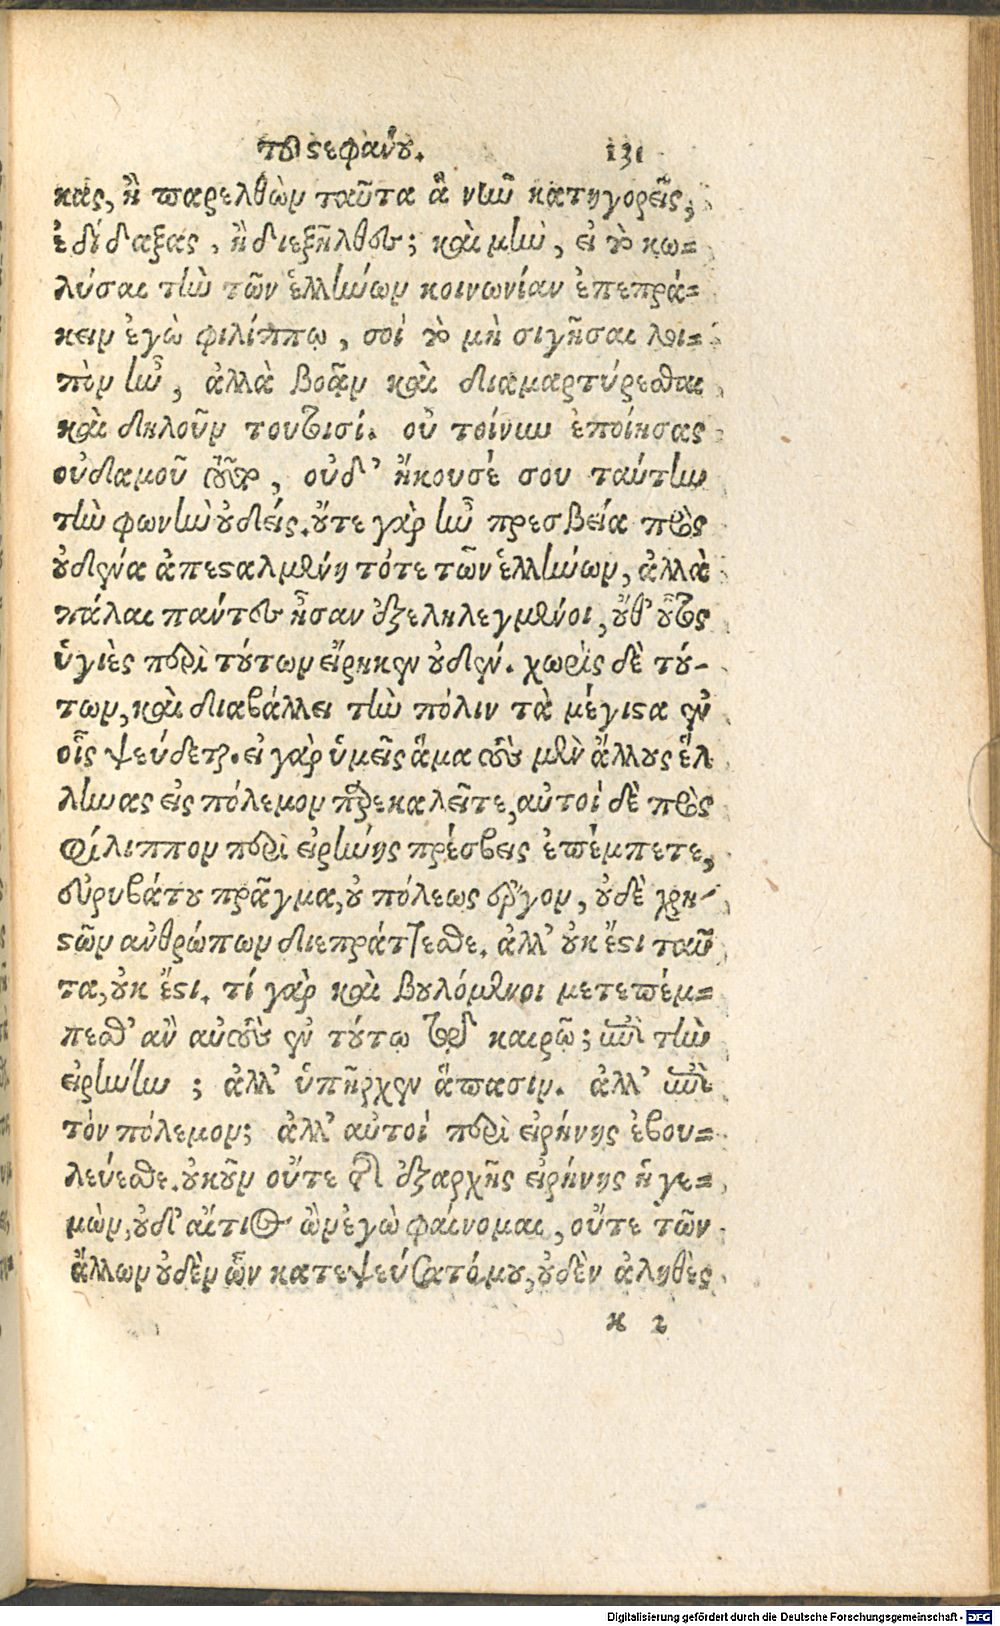 τοῦ στεφάνου. 131
κας, ἢ παρελθὼν ταῦτα ἃ νῦν κατηγορεῖς,
ἐδίδαξας, ἢ διεξῆλθες; καὶ μὴν, εἰ τὸ κω=
λύσαι τὴν τῶν ἑλλήνων κοινωνίαν ἐπεπρά=
κειν ἐγὼ φιλίππῳ, σοὶ τὸ μὴ σιγῆσαι λοι=
πὸν ἦν, ἀλλὰ βοᾷν καὶ διαμαρτύρεσθαι
καὶ δηλοῦν τουτοισί. οὐ τοίνυν ἐποίησας
οὐδαμοῦ τοῦτο, οὐδ' ἤκουσέ σου ταύτην
τὴν φωνὴν οὐδείς. οὔτε γὰρ ἦν πρεσβεία πρὸς
οὐδένα ἀπεσταλμένη τότε τῶν ἑλλήνων, ἀλλὰ
πάλαι πάντες ἦσαν ἐξεληλεγμένοι, οὔθ' οὗτος
ὑγιὲς περὶ τούτων εἴρηκεν οὐδέν. χωρὶς δὲ τού-
των, καὶ διαβάλλει τὴν πόλιν τὰ μέγιστα ἐν
οἷς ψεύδεται. εἰ γὰρ ὑμεῖς ἅμα τοὺς μὲν ἄλλους ἕλ
ληνας εἰς πόλεμον παρεκαλεῖτε, αὐτοὶ δὲ πρὸς
φίλιππον περὶ εἰρήνης πρέσβεις ἐπέμπετε,
εὐρυβάτου πρᾶγμα, οὐ πόλεως ἔργον, οὐδὲ χρη-
στῶν ἀνθρώπων διεπράττεσθε. ἀλλ' οὐκ ἔστι ταῦ
τα, οὐκ ἔστι. τί γὰρ καὶ βουλόμενοι μετεπέμ=
πεσθ' ἂν αὐτοὺς ἐν τούτῳ τῷ καιρῷ; ἐπὶ τὴν
εἰρήνην; ἀλλ' ὑπῆρχεν ἅπασιν. ἀλλ' ἐπὶ
τὸν πόλεμον; ἀλλ' αὐτοὶ περὶ εἰρήνης ἐβου=
λεύεσθε. οὐκοῦν οὔτε τῆς ἐξαρχῆς εἰρήνης ἡγε=
μὼν, οὐδ' αἴτιος ὢν ἐγὼ φαίνομαι, οὔτε τῶν
ἄλλων οὐδὲν ὧν κατεψεύσατό μου, οὐδὲν ἀληθὲς
κ 2
Digitalisierung gefördert durch die Deutsche Forschungsgemeinschaft - DFG